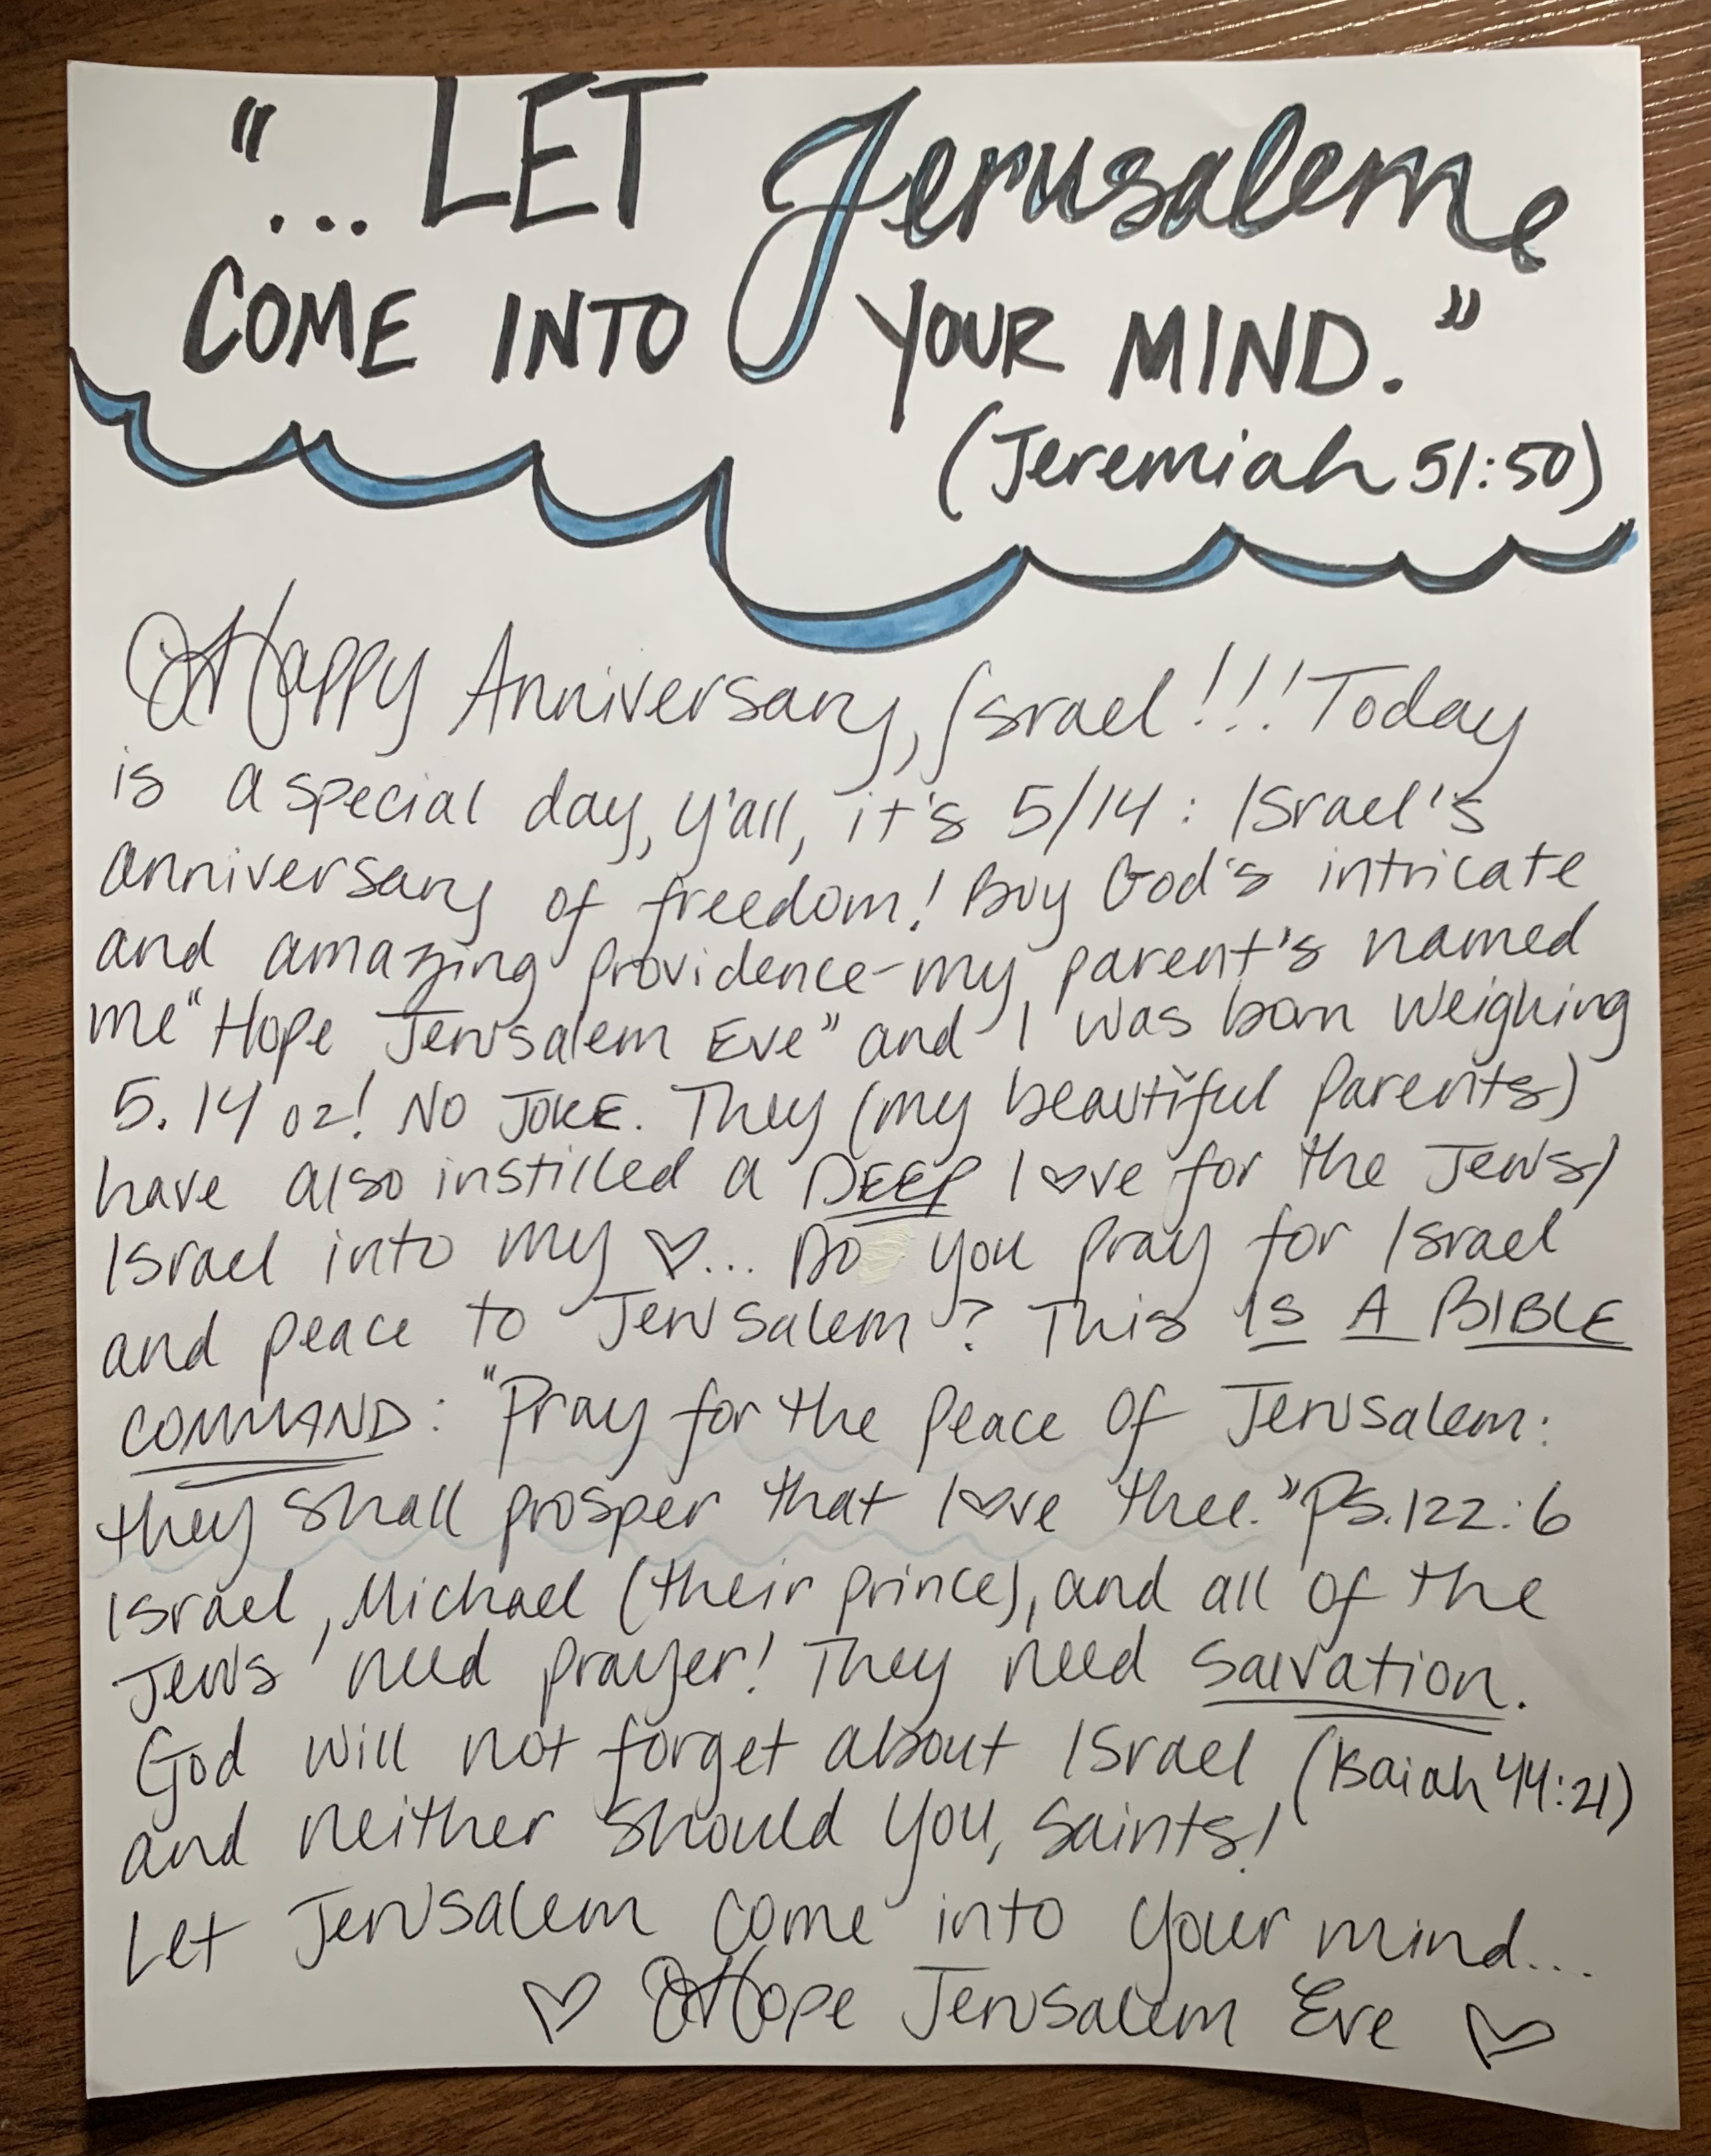 "... LET Jerusalem
COME INTO YOUR MIND."
(Jeremiah 51:50)
Happy Anniversary, Israel!!! Today
is a special day, y'all, it's 5/14: Israel's
anniversary of freedom! Buy God's intricate
and amazing providence-my parent's named
me "Hope Jerusalem Eve" and I was born weighing
5.14 oz! NO JOKE. They (my beautiful parents)
have also instilled a DEEP love for the Jews/
Israel into my ♡... Do you pray for Israel
and peace to Jerusalem? This IS A BIBLE
COMMAND: "Pray for the peace of Jerusalem:
they shall prosper that love thee." PS. 122:6
Israel, Michael (their prince), and all of the
Jews need prayer! They need salvation.
God will not forget about Israel (Isaiah 44:21)
and neither should you, saints!
Let Jerusalem come into your mind...
♡ Hope Jerusalem Eve ♡